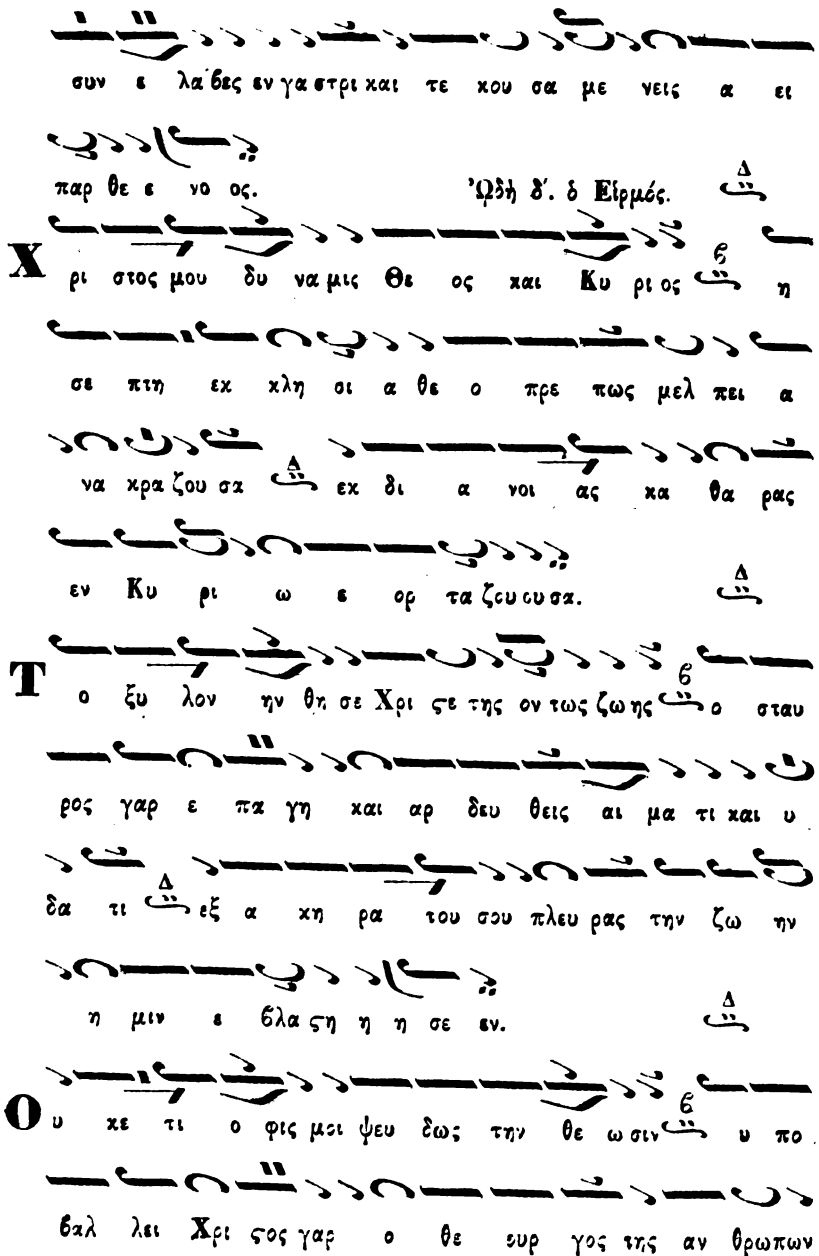 συν ε λα βες εν γα στρι και τε κου σα με νεις α ει
παρ θε ε νο ος. Ὠδὴ δ΄. ὁ Εἱρμός. Δ
Χ ρι στος μου δυ να μις Θε ος και Κυ ρι ος ϐ η
σε πτη εκ κλη σι α θε ο πρε πως μελ πει α
να κρα ζου σα Δ εκ δι α νοι ας κα θα ρας
εν Κυ ρι ω ε ορ τα ζου ου σα. Δ
Τ ο ξυ λον ην θη σε Χρι ϛε της ον τως ζω ης ϐ ο σταυ
ρος γαρ ε πα γη και αρ δευ θεις αι μα τι και υ
δα τι Δ εξ α κη ρα του σου πλευ ρας την ζω ην
η μιν ε ϐλα ϛη η η σε εν. Δ
Ο υ κε τι ο φις μοι ψευ δως την θε ω σιν ϐ υ πο
ϐαλ λει Χρι ϛος γαρ ο θε ουρ γος της αν θρωπων